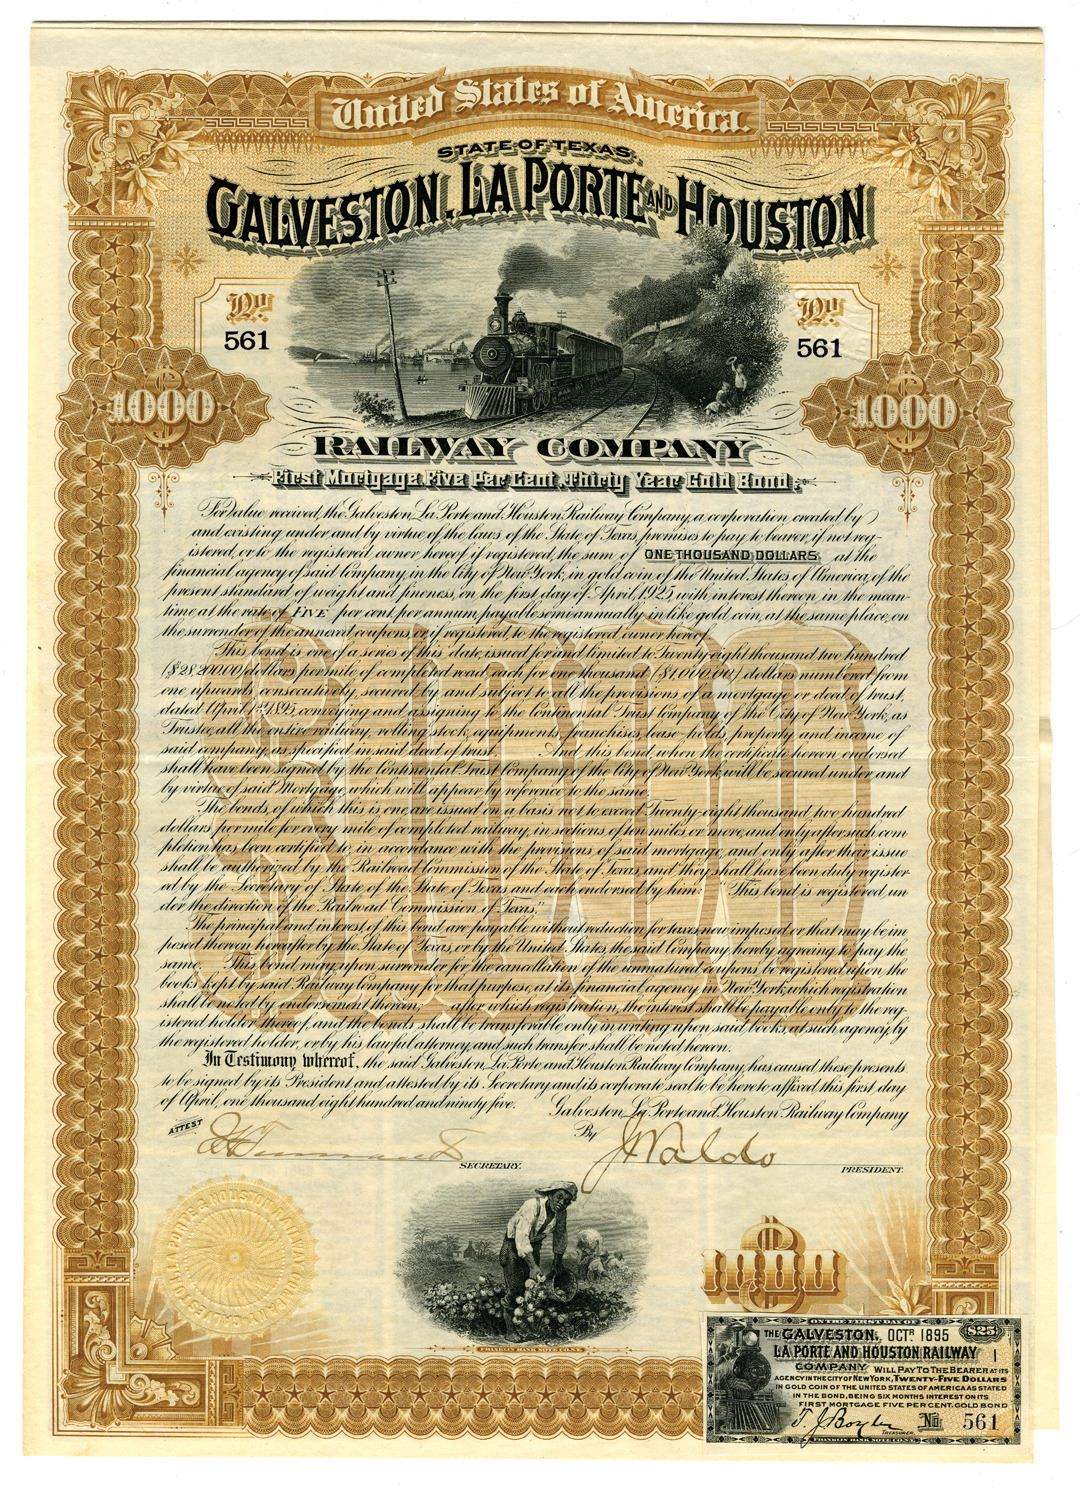 United States of America.
STATE OF TEXAS.
GALVESTON, LA PORTE AND HOUSTON
No. 561
No. 561
1000
1000
RAILWAY COMPANY
First Mortgage Five Per Cent. Thirty Year Gold Bond.
For value received, the Galveston, La Porte and Houston Railway Company, a corporation created by
and existing under and by virtue of the laws of the State of Texas, promises to pay to bearer, if not reg-
istered, or to the registered owner hereof if registered, the sum of ONE THOUSAND DOLLARS, at the
financial agency of said Company, in the City of New York, in gold coin of the United States of America, of the
present standard of weight and fineness, on the first day of April, 1925, with interest thereon in the mean-
time at the rate of FIVE per cent. per annum, payable semi-annually in like gold coin, at the same place, on
the surrender of the annexed coupons, or if registered, to the registered owner hereof.
This bond is one of a series of this date, issued for and limited to Twenty-eight thousand two hundred
($28,200.00) dollars per mile of completed road, each for one thousand ($1,000.00) dollars numbered from
one upwards consecutively, secured by and subject to all the provisions of a mortgage or deed of trust,
dated April 1st, 1895, conveying and assigning to the Continental Trust Company of the City of New York, as
Trustee, all the entire railway, rolling stock, equipments, franchises, lease-holds, property and income of
said company, as specified in said deed of trust. And this bond, when the certificate hereon endorsed
shall have been signed by the Continental Trust Company of the City of New York, will be secured under and
by virtue of said Mortgage, which will appear by reference to the same.
The bonds, of which this is one, are issued on a basis not to exceed Twenty-eight thousand two hundred
dollars per mile, for every mile of completed railway, in sections of ten miles or more, and only after such com-
pletion has been certified to in accordance with the provisions of said mortgage, and only after their issue
shall be authorized by the Railroad Commission of the State of Texas, and they shall have been duly register-
ed by the Secretary of State of the State of Texas and each endorsed by him: "This bond is registered un-
der the direction of the Railroad Commission of Texas."
The principal and interest, of this bond are payable without reduction for taxes, now imposed or that may be im-
posed thereon hereafter by the State of Texas, or by the United States, the said Company hereby agreeing to pay the
same. This bond may, upon surrender for the cancellation of the unmatured coupons, be registered upon the
books, kept by said Railway Company for that purpose, at its financial agency in New York, which registration
shall be noted by endorsement thereon; after which registration, the interest shall be payable only to the reg-
istered holder thereof, and the bonds shall be transferable only in writing upon said books, at such agency, by
the registered holder, or by his lawful attorney, and such transfer shall be noted hereon.
In Testimony whereof, the said Galveston, La Porte and Houston Railway Company, has caused these presents
to be signed by its President and attested by its Secretary and its corporate seal to be hereto affixed this first day
of April, one thousand eight hundred and ninety five. Galveston, La Porte and Houston Railway Company
ATTEST
SECRETARY.
By J Waldo
PRESIDENT.
FRANKLIN BANK NOTE CO. N.Y.
1000
ON THE FIRST DAY OF
THE GALVESTON, OCTR. 1895 $25
LA PORTE AND HOUSTON RAILWAY 1
COMPANY WILL PAY TO THE BEARER AT ITS
AGENCY IN THE CITY OF NEW YORK, TWENTY-FIVE DOLLARS
IN GOLD COIN OF THE UNITED STATES OF AMERICA AS STATED
IN THE BOND, BEING SIX MONTHS INTEREST ON ITS
FIRST MORTGAGE FIVE PER CENT. GOLD BOND
T. J. Boyles No. 561
TREASURER.
FRANKLIN BANK NOTE CO. N.Y.